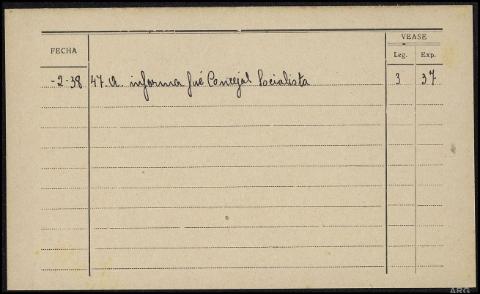 VEASE
FECHA
Leg. Exp.
-2-38 47.A. informa fué Concejal Socialista 3 37
ARG